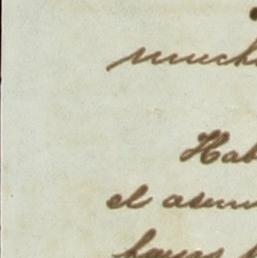 much
Hab
el asun